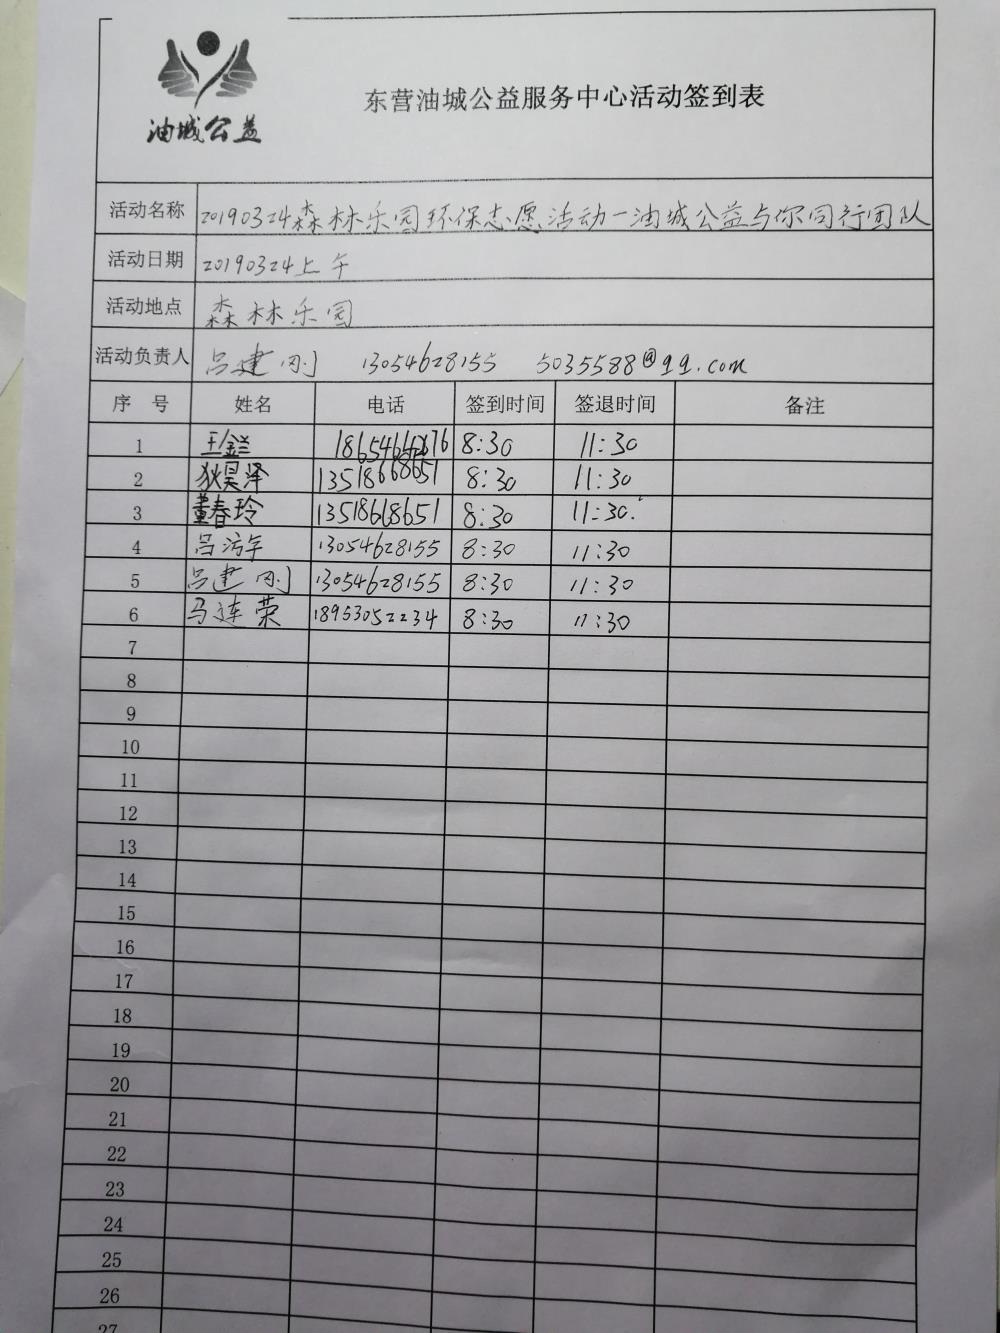 油城公益
东营油城公益服务中心活动签到表
活动名称 20190324森林乐园环保志愿活动一油城公益与你同行团队
活动日期 20190324上午
活动地点 森林乐园
活动负责人 吕建刚 13054628155 5035588@qq.com
序号 姓名 电话 签到时间 签退时间 备注
1 8:30 11:30
2 狄昊泽 13518668651 8:30 11:30
3 董春玲 13518668651 8:30 11:30.
4 13054628155 8:30 11:30
5 吕建刚 13054628155 8:30 11:30
6 马连荣 18953052234 8:30 11:30
7
8
9
10
11
12
13
14
15
16
17
18
19
20
21
22
23
24
25
26
27